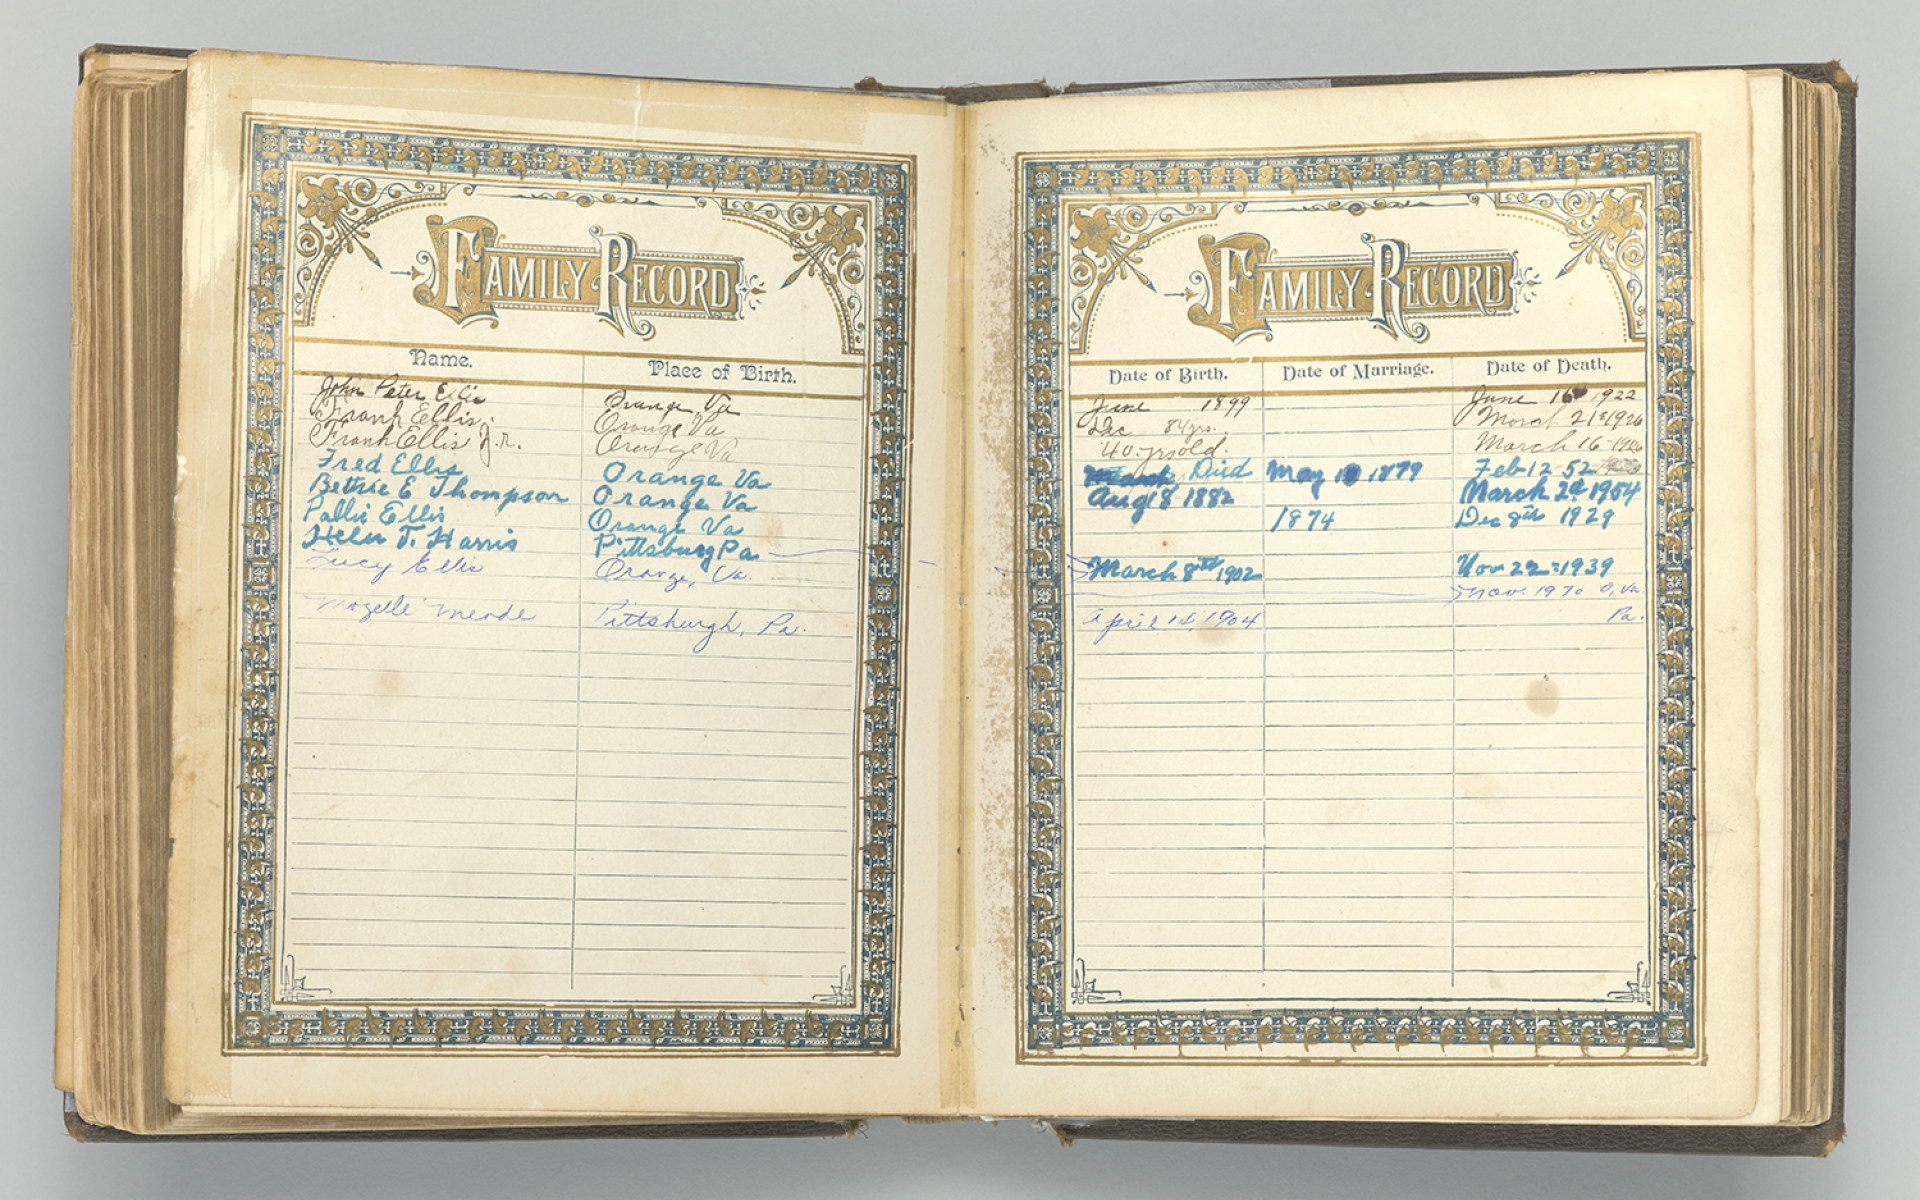 FAMILY RECORD
Name. Place of Birth.
John Peter Ellis Orange, Va
Frank Ellis. Orange Va
Frank Ellis J.r. Orange Va
Fred Ellis Orange Va
Bettie E Thompson Orange Va
Pollie Ellis Orange Va
Helen T. Harris Pittsburg Pa
Lucy Ellis Orange, Va.
Mozelle Meade Pittsburgh, Pa.
FAMILY RECORD
Date of Birth. Date of Marriage. Date of Death.
June 1899 June 16 1922
Dec 84 yrs. March 21st 1926
40. yrs old. March 16-
Died May 1879 Feb-12-52
Aug 18 1882 March 1954
1874 Dec 8th 1929
March 8th 1902 Nov 22=1939
Nov. 1970 O, Va.
April 14, 1904 Pa.